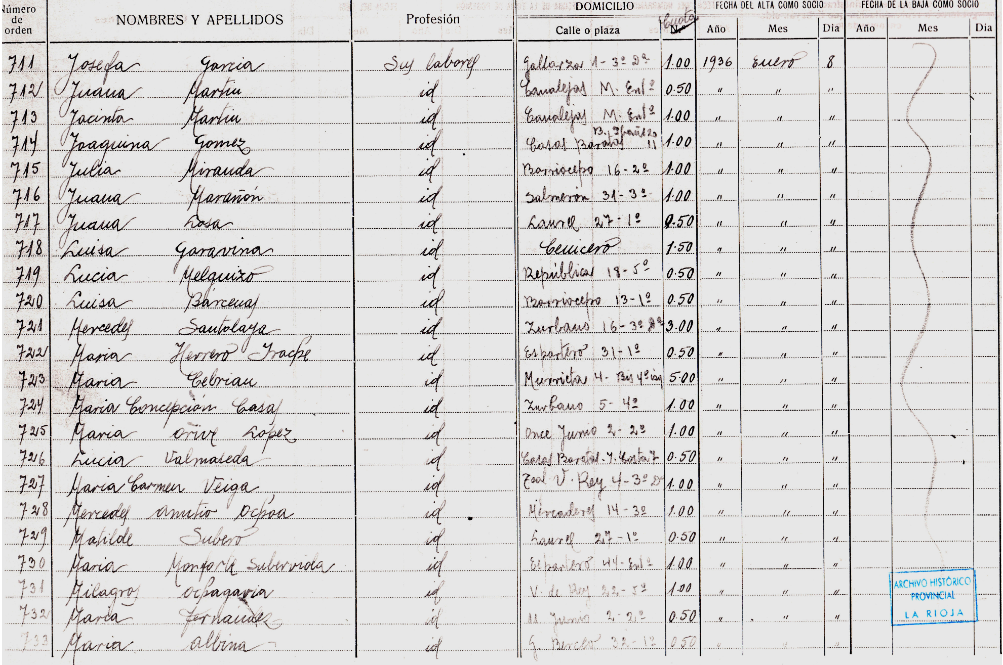 Número de orden NOMBRES Y APELLIDOS Profesión DOMICILIO Calle o plaza Cuota N.º FECHA DEL ALTA COMO SOCIO Año Mes Día FECHA DE LA BAJA COMO SOCIO Año Mes Día
711 Josefa Garcia Sus labores Gallarza 1-3º Dª 1.00 1936 Enero 8
712 Juana Martin id Canalejas M. Entº 0.50 " " "
713 Jacinta Martin id Canalejas M. Entº 1.00 " " "
714 Joaquina Gomez id Casas Baratas 11 1.00 " " "
715 Julia Miranda id Barriocepo 16-2º 1.00 " " "
716 Juana Marañón id Salmeron 31-3º 1.00 " " "
717 Juana Losa id Laurel 27-1º 0.50 " " "
718 Luisa Garavina id Cenicero 1.50 " " "
719 Lucia Melguizo id República 18-5º 0.50 " " "
720 Luisa Bárcenas id Barriocepo 13-1º 0.50 " " "
721 Mercedes Santolaya id Zurbano 16-3º Dª 3.00 " " "
722 Maria Herrero Irache id Espartero 31-1º 0.50 " " "
723 Maria Cebrian id Murrieta 4- Bis 4º izq 5.00 " " "
724 Maria Concepción Casas id Zurbano 5-4º 1.00 " " "
725 Maria Orive López id Once Junio 2-2º 1.00 " " "
726 Lucia Valmaseda id Casas Baratas-J. Costa 7 0.50 " " "
727 Maria Carmen Veiga id V. Rey 4-3º D 1.00 " " "
728 Mercedes Ochoa id Mercaderes 14-3º 1.00 " " "
729 Matilde Subero id Laurel 27-1º 0.50 " " "
730 Maria Monforte Suberviola id Espartero 44-Entº 1.00 " " "
731 Milagros Ochagavia id V. de Rey 22-5º 1.00 " " "
732 Maria Fernandez id 11 Junio 2-2º 0.50 " " "
733 Maria Albina id G. Berceo 32-1º 0.50 " " "
ARCHIVO HISTÓRICO
PROVINCIAL
LA RIOJA